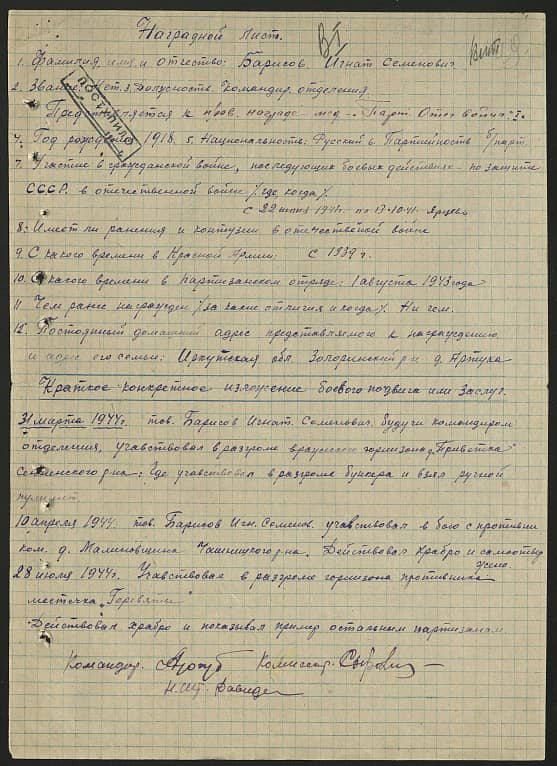 Наградной лист.
1. Фамилия, имя и отчество: Барисов Игнат Семенович.
2. Звание: Нет. 3. Должность. Командир отделения.
Представляется к прав. награде мед. Парт. Отеч войны I
ПОСТУПИЛО
4. Год рождения 1918. 5. Национальность: Русский 6. Партийность б/парт
7. Участие в гражданской войне, последующих боевых действиях по защите
СССР. в отечественной войне /где, когда/.
с 22 июня 1941г. по 13-10-41. Ярцево
8. Имеет ли ранения и контузии в отечественой войне
9. С какого времени в Красной Армии: С 1939 г.
10. С какого времени в партизанском отряде: 1 августа 1943 года
11. Чем ранее награжден /за какие отличия и когда/. Ни чем.
12. Постоянный домашний адрес представляемого к награждению
и адрес его семьи: Иркутская обл. р-н д. Артуха
Краткое конкретное изложение боевого подвига или Заслуг.
31 марта 1944г. тов. Барисов Игнат. Семенович. будучи командиром
отделения, учавствовал в разгроме вражеского гарнизона д.
р-на: Где учавствовал в разгроме бункера и взял ручной
пулимёт
10 апреля 1944. тов. Барисов Игн. Семенов. учавствовал в бою с противни
ком. д. Малиновщина Чашницкого р-на. Действовал храбро и самоотвер
жено.
28 июля 1944г. Учавствовал в разгроме гарнизона противника
местечка
Действовал храбро и показывал пример остальным партизанам.
Командир. Комиссар.
Н.Шт.